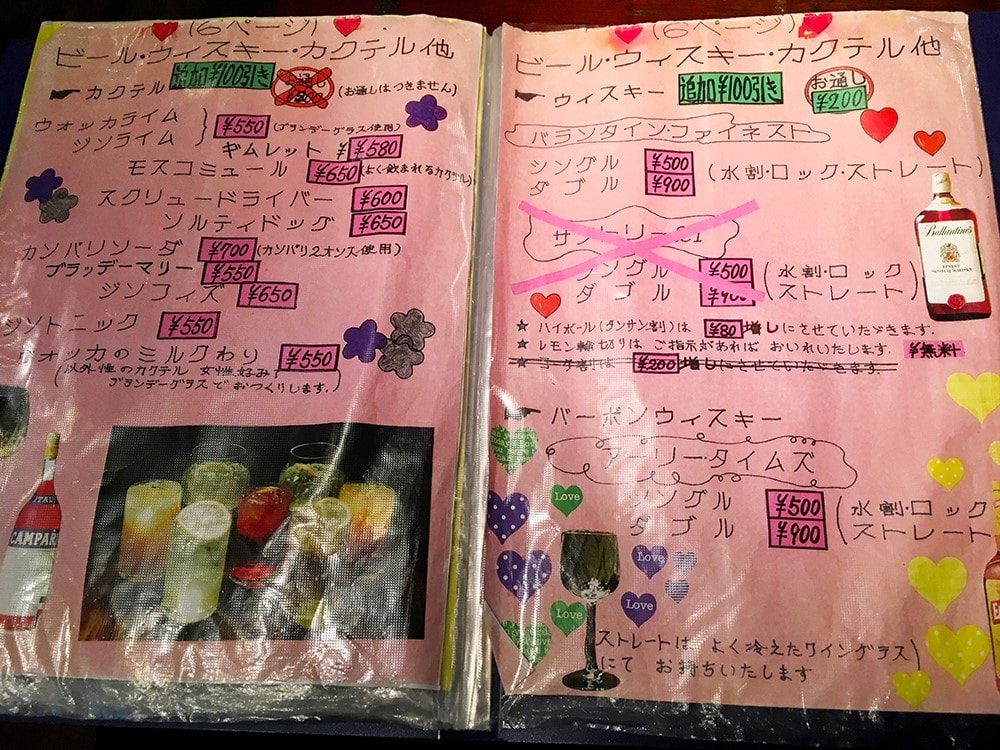 (6ページ)
ビール・ウィスキー・カクテル他
カクテル 追加¥100引き (お通しはつきません)
ウォッカライム
ジンライム ¥550 (ブランデーグラス使用)
ギムレット ¥580
モスコミュール ¥650 (よく飲まれるカクテル)
スクリュードライバー ¥600
ソルティドッグ ¥650
カンパリソーダ ¥700 (カンパリ2オンス使用)
ブラッデーマリー ¥550
ジンフィズ ¥650
ジントニック ¥550
ウォッカのミルクわり ¥550
(以外性のカクテル 女性好み?
ブランデーグラスでおつくりします.)
CAMPARI
(6ページ)
ビール・ウィスキー・カクテル他
ウィスキー 追加¥100引き お通し ¥200
バランタイン・ファイネスト
シングル ¥500
ダブル ¥900 (水割・ロック・ストレート)
Ballantine's
FINEST
SCOTCH WHISKY
サントリー
シングル ¥500 (水割・ロック
ダブル ¥900 ストレート)
★ ハイボール(タンサン割)は ¥80 増しにさせていただきます.
★ レモン輪切りは ご指示があれば おいれいたします. ¥無料
★ コーク割は ¥200 増しにさせていただきます.
バーボンウィスキー
アーリー・タイムズ
シングル ¥500 (水割・ロック
ダブル ¥900 ストレート
Love
Love
Love
Love
ストレートは よく冷えたワイングラス)
にて お持ちいたします